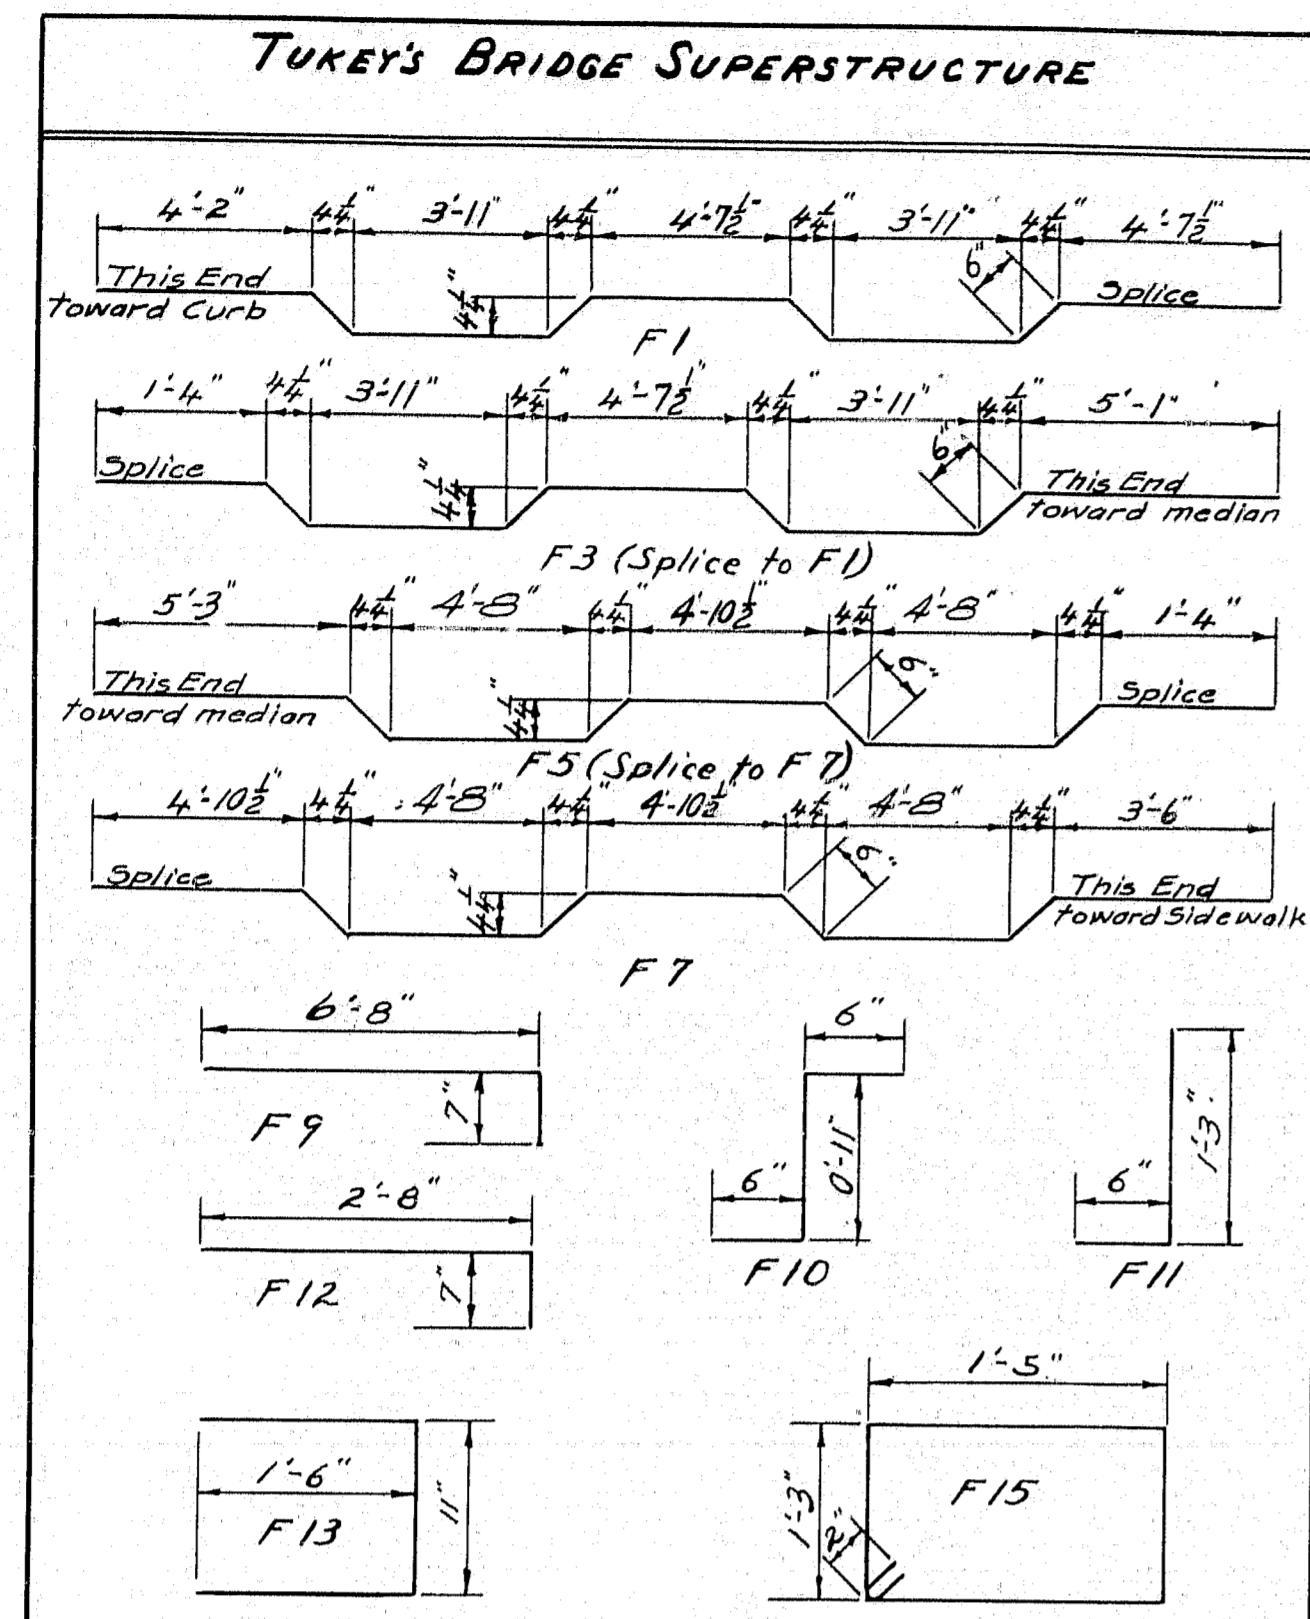 TUKEY'S BRIDGE SUPERSTRUCTURE
4'-2" 4 1/4" 3'-11" 4 1/4" 4'-7 1/2" 4 1/4" 3'-11" 4 1/4" 4'-7 1/2"
This End
toward Curb
4 1/4"
6"
Splice
F1
1'-4" 4 1/4" 3'-11" 4 1/4" 4'-7 1/2" 4 1/4" 3'-11" 4 1/4" 5'-1"
Splice
4 1/4"
6"
This End
toward median
F3 (Splice to F1)
5'-3" 4 1/4" 4'-8" 4 1/4" 4'-10 1/2" 4 1/4" 4'-8" 4 1/4" 1'-4"
This End
toward median
4 1/4"
6"
Splice
F5 (Splice to F7)
4'-10 1/2" 4 1/4" 4'-8" 4 1/4" 4'-10 1/2" 4 1/4" 4'-8" 4 1/4" 3'-6"
Splice
4 1/4"
6"
This End
toward Sidewalk
F7
6'-8"
7"
F9
6"
0'-11"
6"
F10
1'-3"
6"
F11
2'-8"
7"
F12
1'-6"
11"
F13
1'-5"
1'-3"
2"
F15